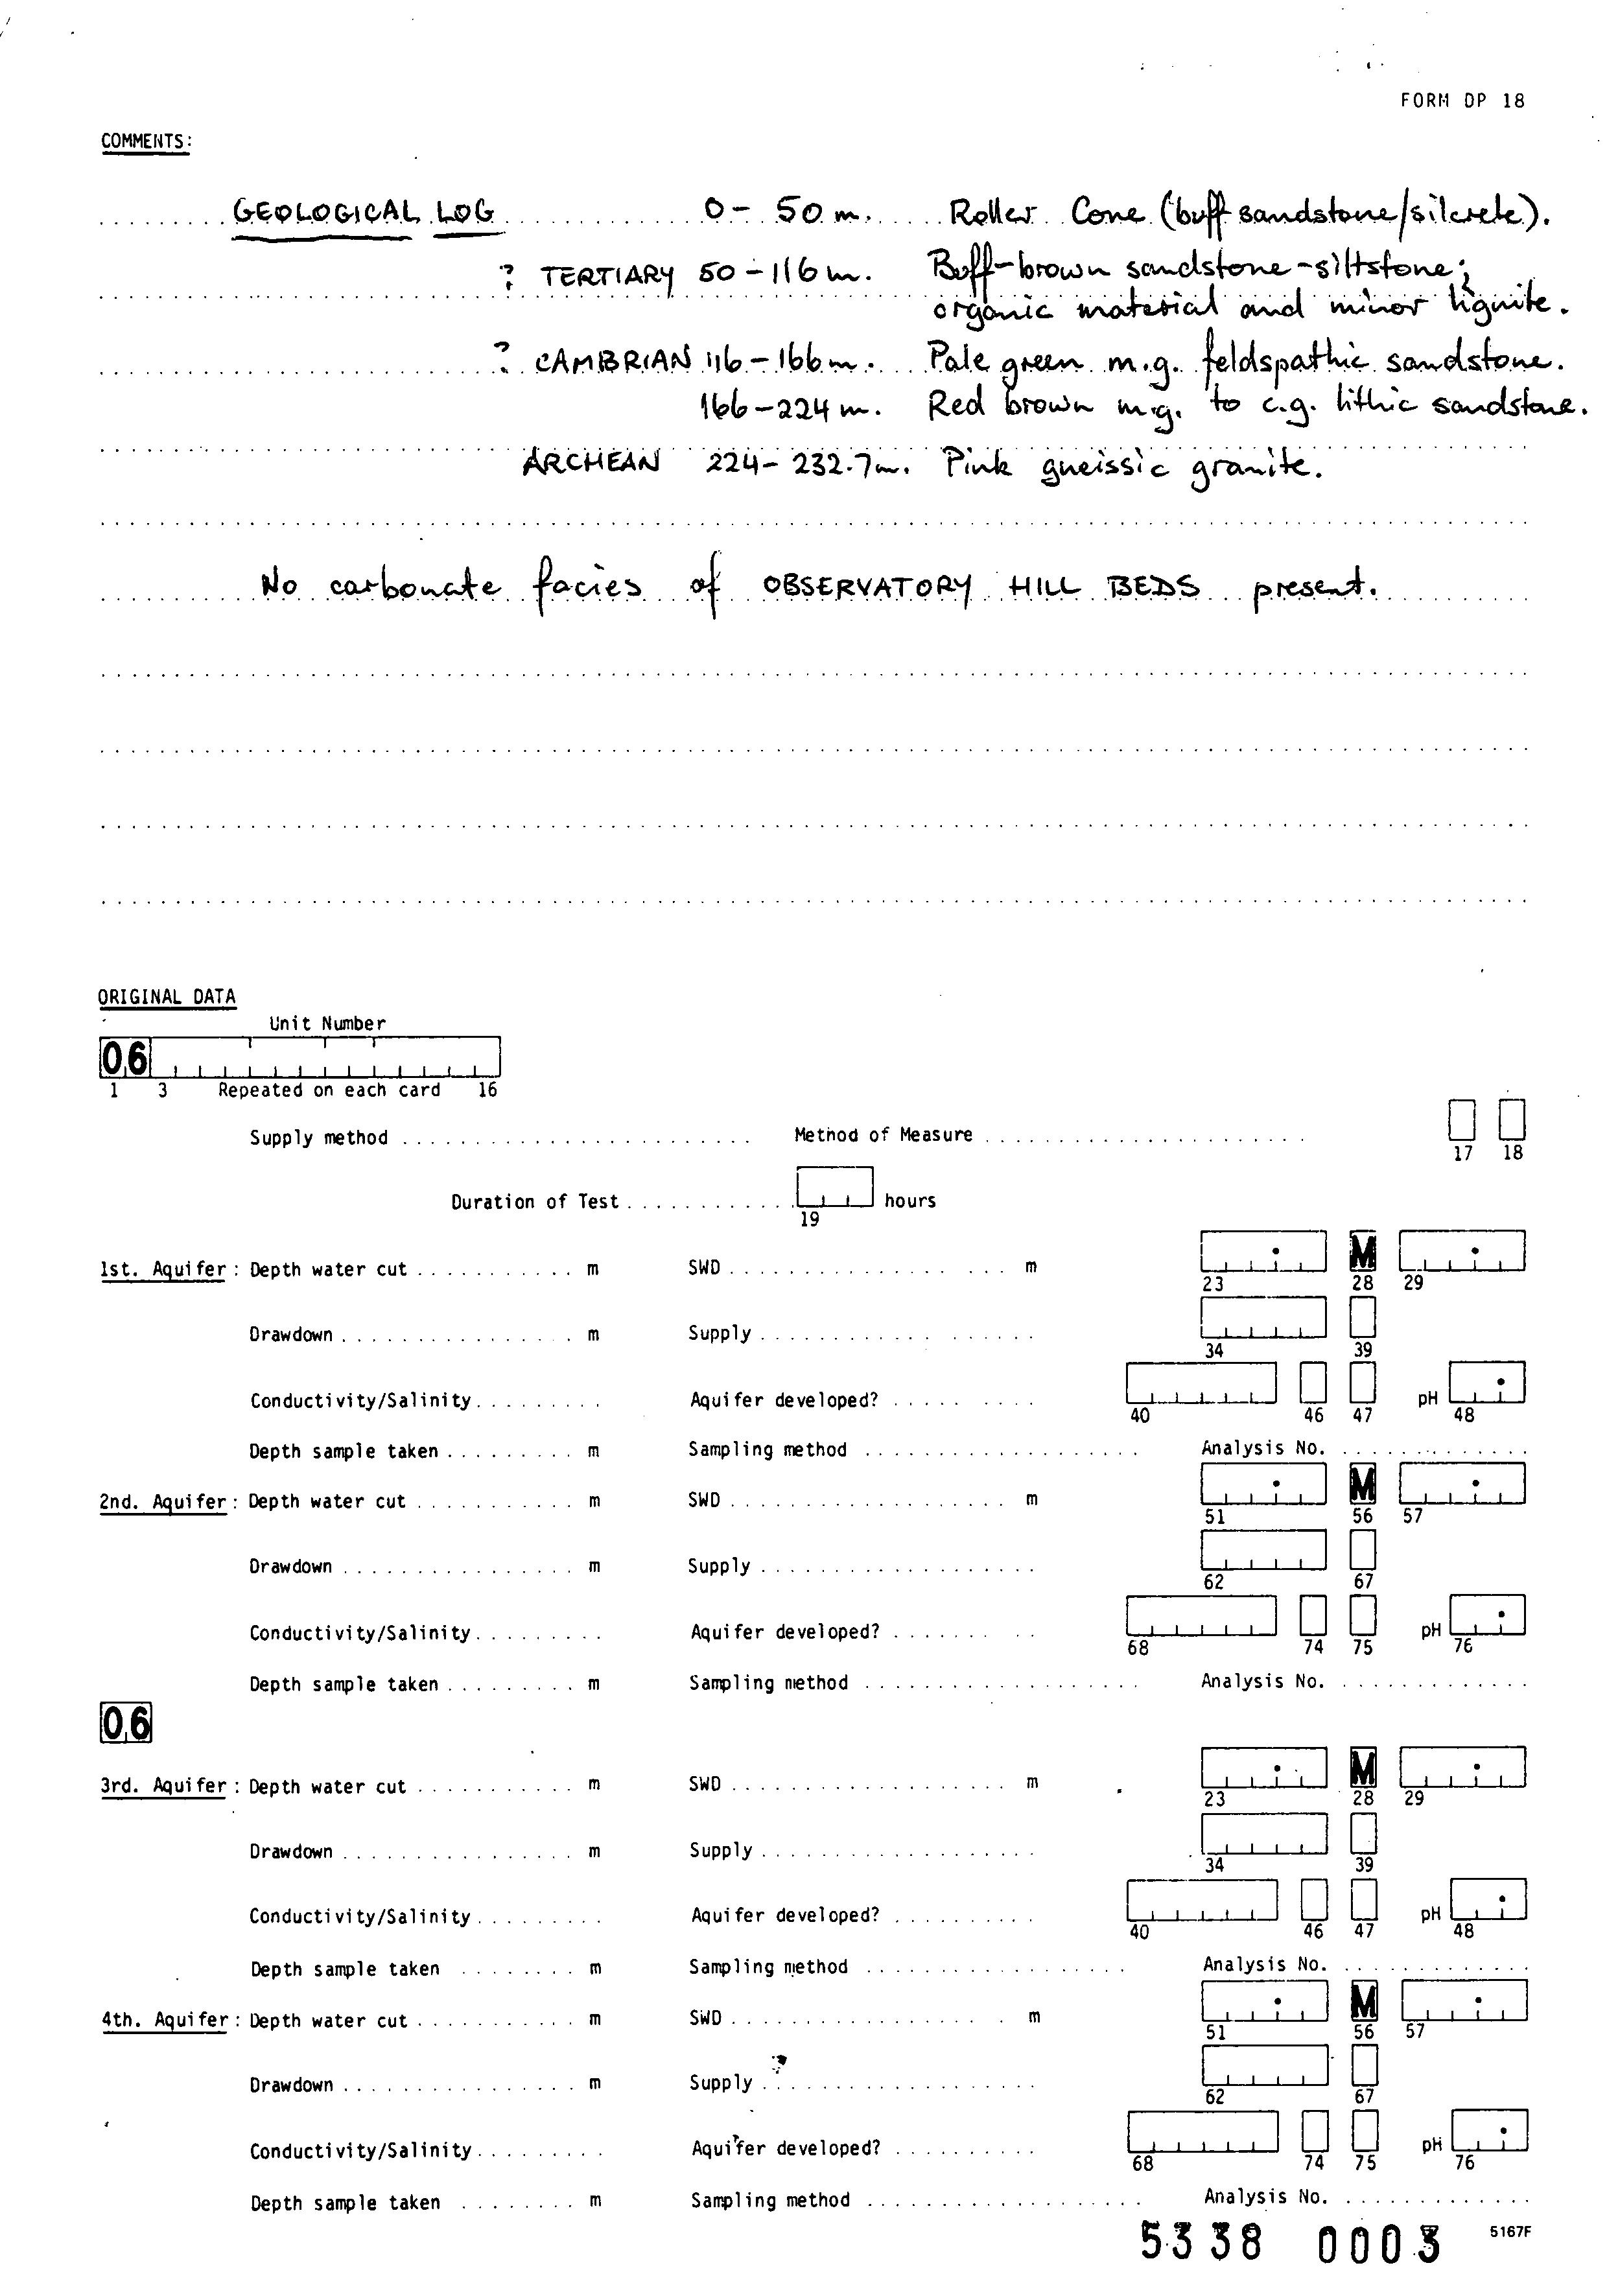 FORM DP 18
COMMENTS:
GEOLOGICAL LOG 0 - 50 m. Roller Cone (buff sandstone/silcrete).
? TERTIARY 50 - 116 m. Buff-brown sandstone-siltstone;
organic material and minor lignite.
? CAMBRIAN 116 - 166 m. Pale green m.g. feldspathic sandstone.
166 - 224 m. Red brown m.g. to c.g. lithic sandstone.
ARCHEAN 224 - 232.7 m. Pink gneissic granite.
No carbonate facies of OBSERVATORY HILL BEDS present.
ORIGINAL DATA
Unit Number
06
1 3 Repeated on each card 16
Supply method Method of Measure
17 18
Duration of Test hours
19
1st. Aquifer: Depth water cut m SWD m M
23 28 29
Drawdown m Supply
34 39
Conductivity/Salinity Aquifer developed? pH
40 46 47 48
Depth sample taken m Sampling method Analysis No.
2nd. Aquifer: Depth water cut m SWD m M
51 56 57
Drawdown m Supply
62 67
Conductivity/Salinity Aquifer developed? pH
68 74 75 76
Depth sample taken m Sampling method Analysis No.
06
3rd. Aquifer: Depth water cut m SWD m M
23 28 29
Drawdown m Supply
34 39
Conductivity/Salinity Aquifer developed? pH
40 46 47 48
Depth sample taken m Sampling method Analysis No.
4th. Aquifer: Depth water cut m SWD m M
51 56 57
Drawdown m Supply
62 67
Conductivity/Salinity Aquifer developed? pH
68 74 75 76
Depth sample taken m Sampling method Analysis No.
5338 0003 5167F